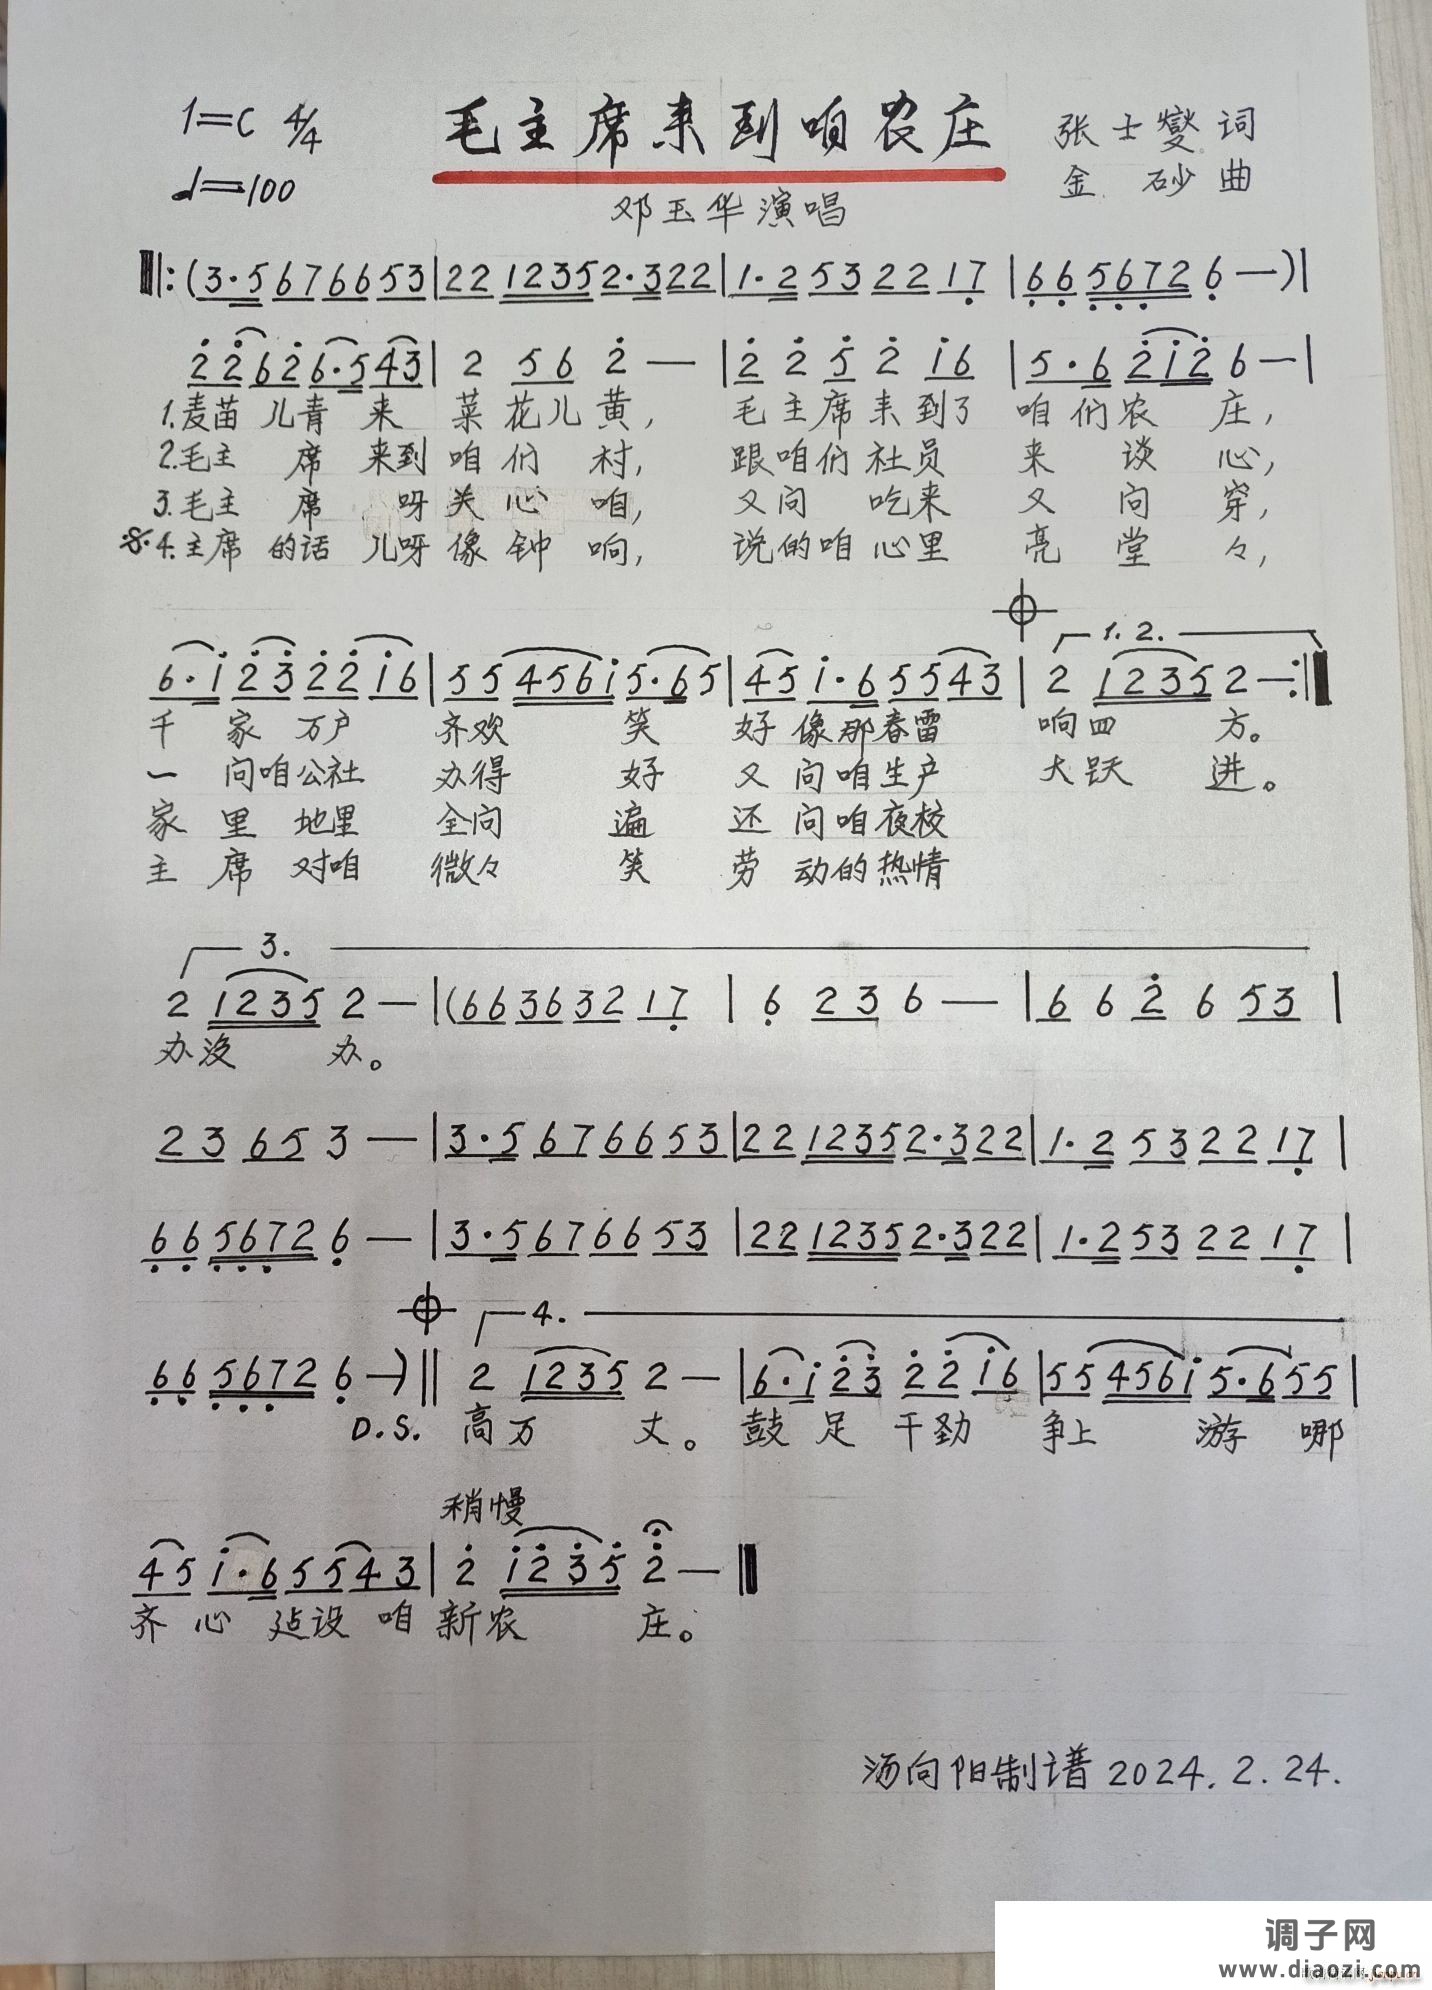 1=C 4/4
毛主席来到咱农庄
张士燮词
♩=100
金 砂曲
邓玉华演唱
‖:(3·5 67 66 53|22 1235 2·3 22|1·2 53 22 17|66 5672 6 —)|
22 62 6·5 43|2 56 2 —|2 2 5 2 16|5·6 212 6 —|
1.麦苗儿青来 菜花儿黄, 毛主席来到了 咱们农庄,
2.毛主席来到 咱们村, 跟咱们社员 来谈心,
3.毛主席呀 关心咱, 又问吃来 又问穿,
4.主席的话儿呀 像钟响, 说的咱心里 亮堂々,
6·1 23 22 16|55 4561 5·6 5|45 1·6 55 43|
1. 2.
2 1235 2 —:‖
千家万户 齐欢笑 好像那春雷 响四方。
一问咱公社 办得好 又问咱生产 大跃进。
家里地里 全问遍 还问咱夜校
主席对咱 微々笑 劳动的热情
3.
2 1235 2 —|(66 36 32 17|6 23 6 —|6 6 2 6 53|
办没办。
23 65 3 —|3·5 67 66 53|22 1235 2·3 22|1·2 53 22 17|
66 5672 6 —|3·5 67 66 53|22 1235 2·3 22|1·2 53 22 17|
4.
66 5672 6 —)‖2 1235 2 —|6·1 23 22 16|55 4561 5·6 55|
D.S. 高万丈。 鼓足干劲 争上游哪
稍慢
45 1·6 55 43|2 1235 2 —‖
齐心建设咱 新农庄。
汤向阳制谱 2024.2.24.
调子网
www.diaozi.com